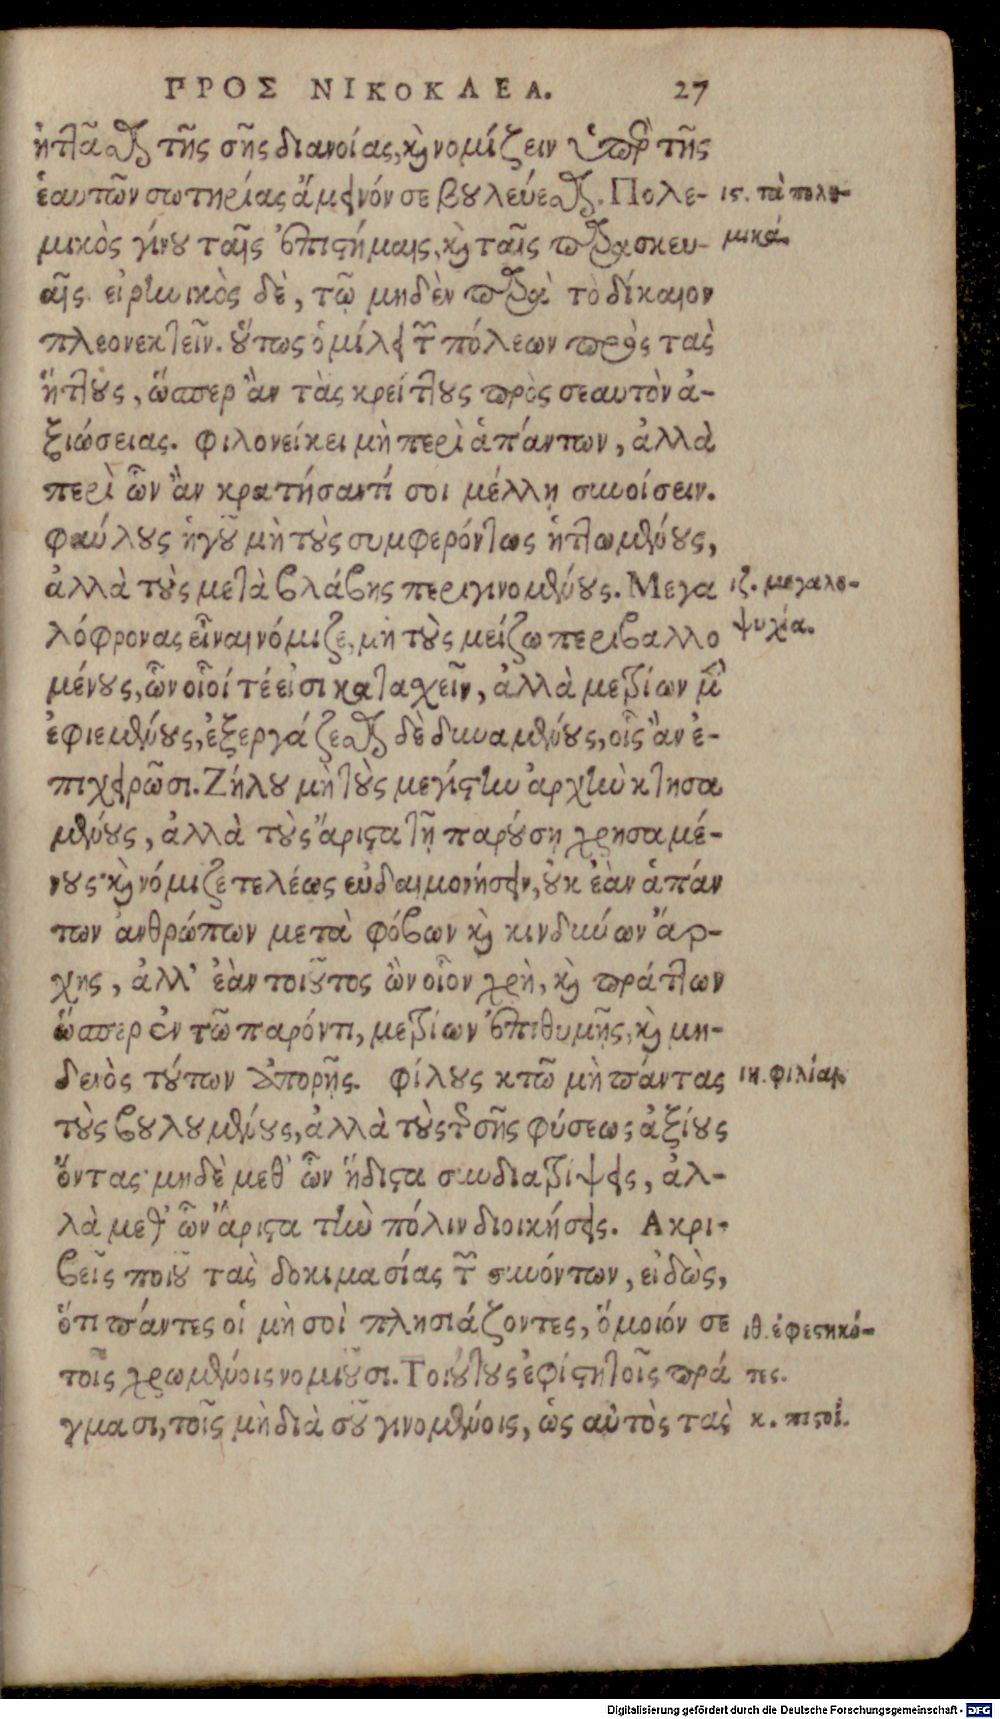 ΠΡΟΣ ΝΙΚΟΚΛΕΑ. 27
ἡτλᾶσθαι τῆς σῆς διανοίας, καὶ νομίζειν ὑπὲρ τῆς
ἑαυτῶν σωτηρίας ἄμεινόν σε βουλεύεσθαι. Πολε-
ις. τὰ πολε-
μικὸς γίνου ταῖς ἐπιστήμαις, καὶ ταῖς παρασκευ-
μικά.
αῖς· εἰρηνικὸς δὲ, τῷ μηδὲν παρὰ τὸ δίκαιον
πλεονεκτεῖν. οὕτως ὁμίλει τῶν πόλεων πρὸς τὰς
ἥττους, ὥσπερ ἂν τὰς κρείττους πρὸς σεαυτὸν ἀ-
ξιώσειας. φιλονείκει μὴ περὶ ἁπάντων, ἀλλὰ
περὶ ὧν ἂν κρατήσαντί σοι μέλλῃ συνοίσειν.
φαύλους ἡγοῦ μὴ τοὺς συμφερόντως ἡττωμένους,
ἀλλὰ τοὺς μετὰ βλάβης περιγινομένους. Μεγα
ιζ. μεγαλο-
λόφρονας εἶναι νόμιζε, μὴ τοὺς μείζω περιβαλλο
ψυχία.
μένους, ὧν οἷοί τέ εἰσι κατασχεῖν, ἀλλὰ μετρίων μὲν
ἐφιεμένους, ἐξεργάζεσθαι δὲ δυναμένους, οἷς ἂν ἐ-
πιχειρῶσι. Ζήλου μὴ τοὺς μεγίστην ἀρχὴν κτησα
μένους, ἀλλὰ τοὺς ἄριστα τῇ παρούσῃ χρησαμέ-
νους· καὶ νόμιζε τελέως εὐδαιμονήσειν, οὐκ ἐὰν ἁπάν
των ἀνθρώπων μετὰ φόβων καὶ κινδύνων ἄρ-
χῃς, ἀλλ' ἐὰν τοιοῦτος ὢν οἷον χρὴ, καὶ πράττων
ὥσπερ ἐν τῷ παρόντι, μετρίων ἐπιθυμῇς, καὶ μη-
δενὸς τούτων ἀπορῇς. φίλους κτῶ μὴ πάντας
ιη. φιλίαι.
τοὺς βουλομένους, ἀλλὰ τοὺς τῆς σῆς φύσεως ἀξίους
ὄντας· μηδὲ μεθ' ὧν ἥδιστα συνδιατρίψεις, ἀλ-
λὰ μεθ' ὧν ἄριστα τὴν πόλιν διοικήσεις. Ακρι-
βεῖς ποιοῦ τὰς δοκιμασίας τῶν συνόντων, εἰδὼς,
ὅτι πάντες οἱ μὴ σοὶ πλησιάζοντες, ὅμοιόν σε
ιθ. ἐφεστηκό-
τοῖς χρωμένοις νομιοῦσι. Τοιούτους ἐφίστη τοῖς πρά
τες.
γμασι, τοῖς μὴ διὰ σοῦ γινομένοις, ὡς αὐτὸς τὰς
κ. πιστοί.
Digitalisierung gefördert durch die Deutsche Forschungsgemeinschaft - DFG